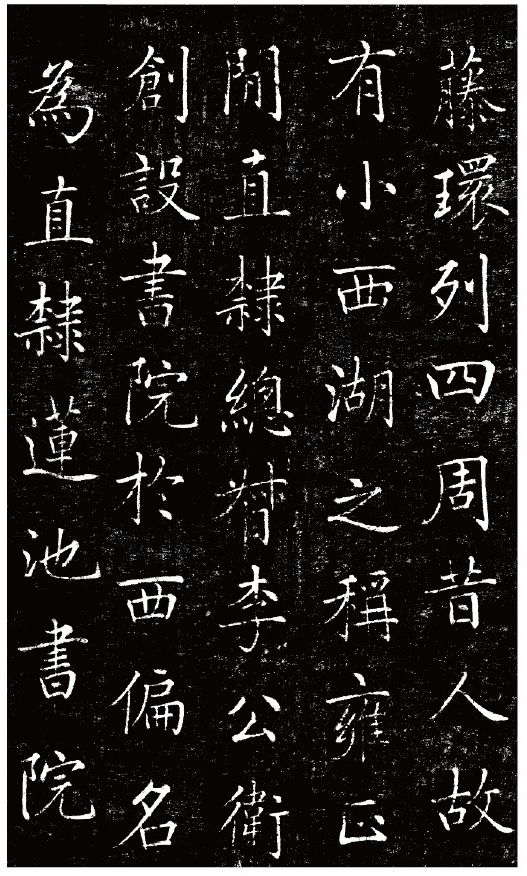 藤環列四周昔人故
有小西湖之稱雍正
間直隸總督李公衛
創設書院於西偏名
為直隸蓮池書院